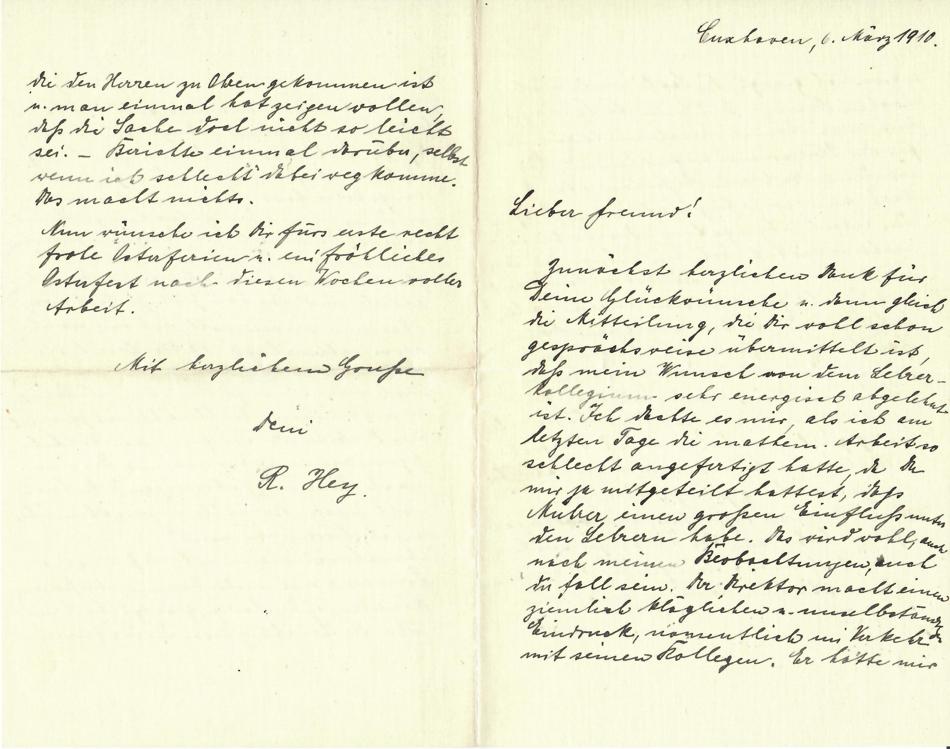 Cuxhaven, 6. März 1910.
Lieber Freund!
Zunächst herzlichen Dank für
Deine Glückwünsche u. dann gleich
die Mitteilung, die Dir wohl schon
gesprächsweise übermittelt ist,
daß mein Wunsch von dem Lehrer-
kollegium sehr energisch abgelehnt
ist. Ich dachte es mir, als ich am
letzten Tage die mathem. Arbeit so
schlecht angefertigt hatte, da Du
mir ja mitgeteilt hattest, daß
einen großen Einfluß unter
den Lehrern habe. Das wird wohl, auch
nach meinen Beobachtungen, auch
der Fall sein. Der Direktor macht einen
ziemlich kläglichen u. unselbständ.
Eindruck, namentlich im Verkehr
mit seinen Kollegen. Er hatte mir
die den Herren zu Ohren gekommen ist
u. man einmal hat zeigen wollen,
daß die Sache doch nicht so leicht
sei. – Berichte einmal darüber, selbst
wenn ich schlecht dabei wegkomme.
Das macht nichts.
Nun wünsche ich Dir fürs erste recht
frohe Osterferien u. ein fröhliches
Osterfest nach diesen Wochen voller
Arbeit.
Mit herzlichem Gruße
Dein
R. Hey.